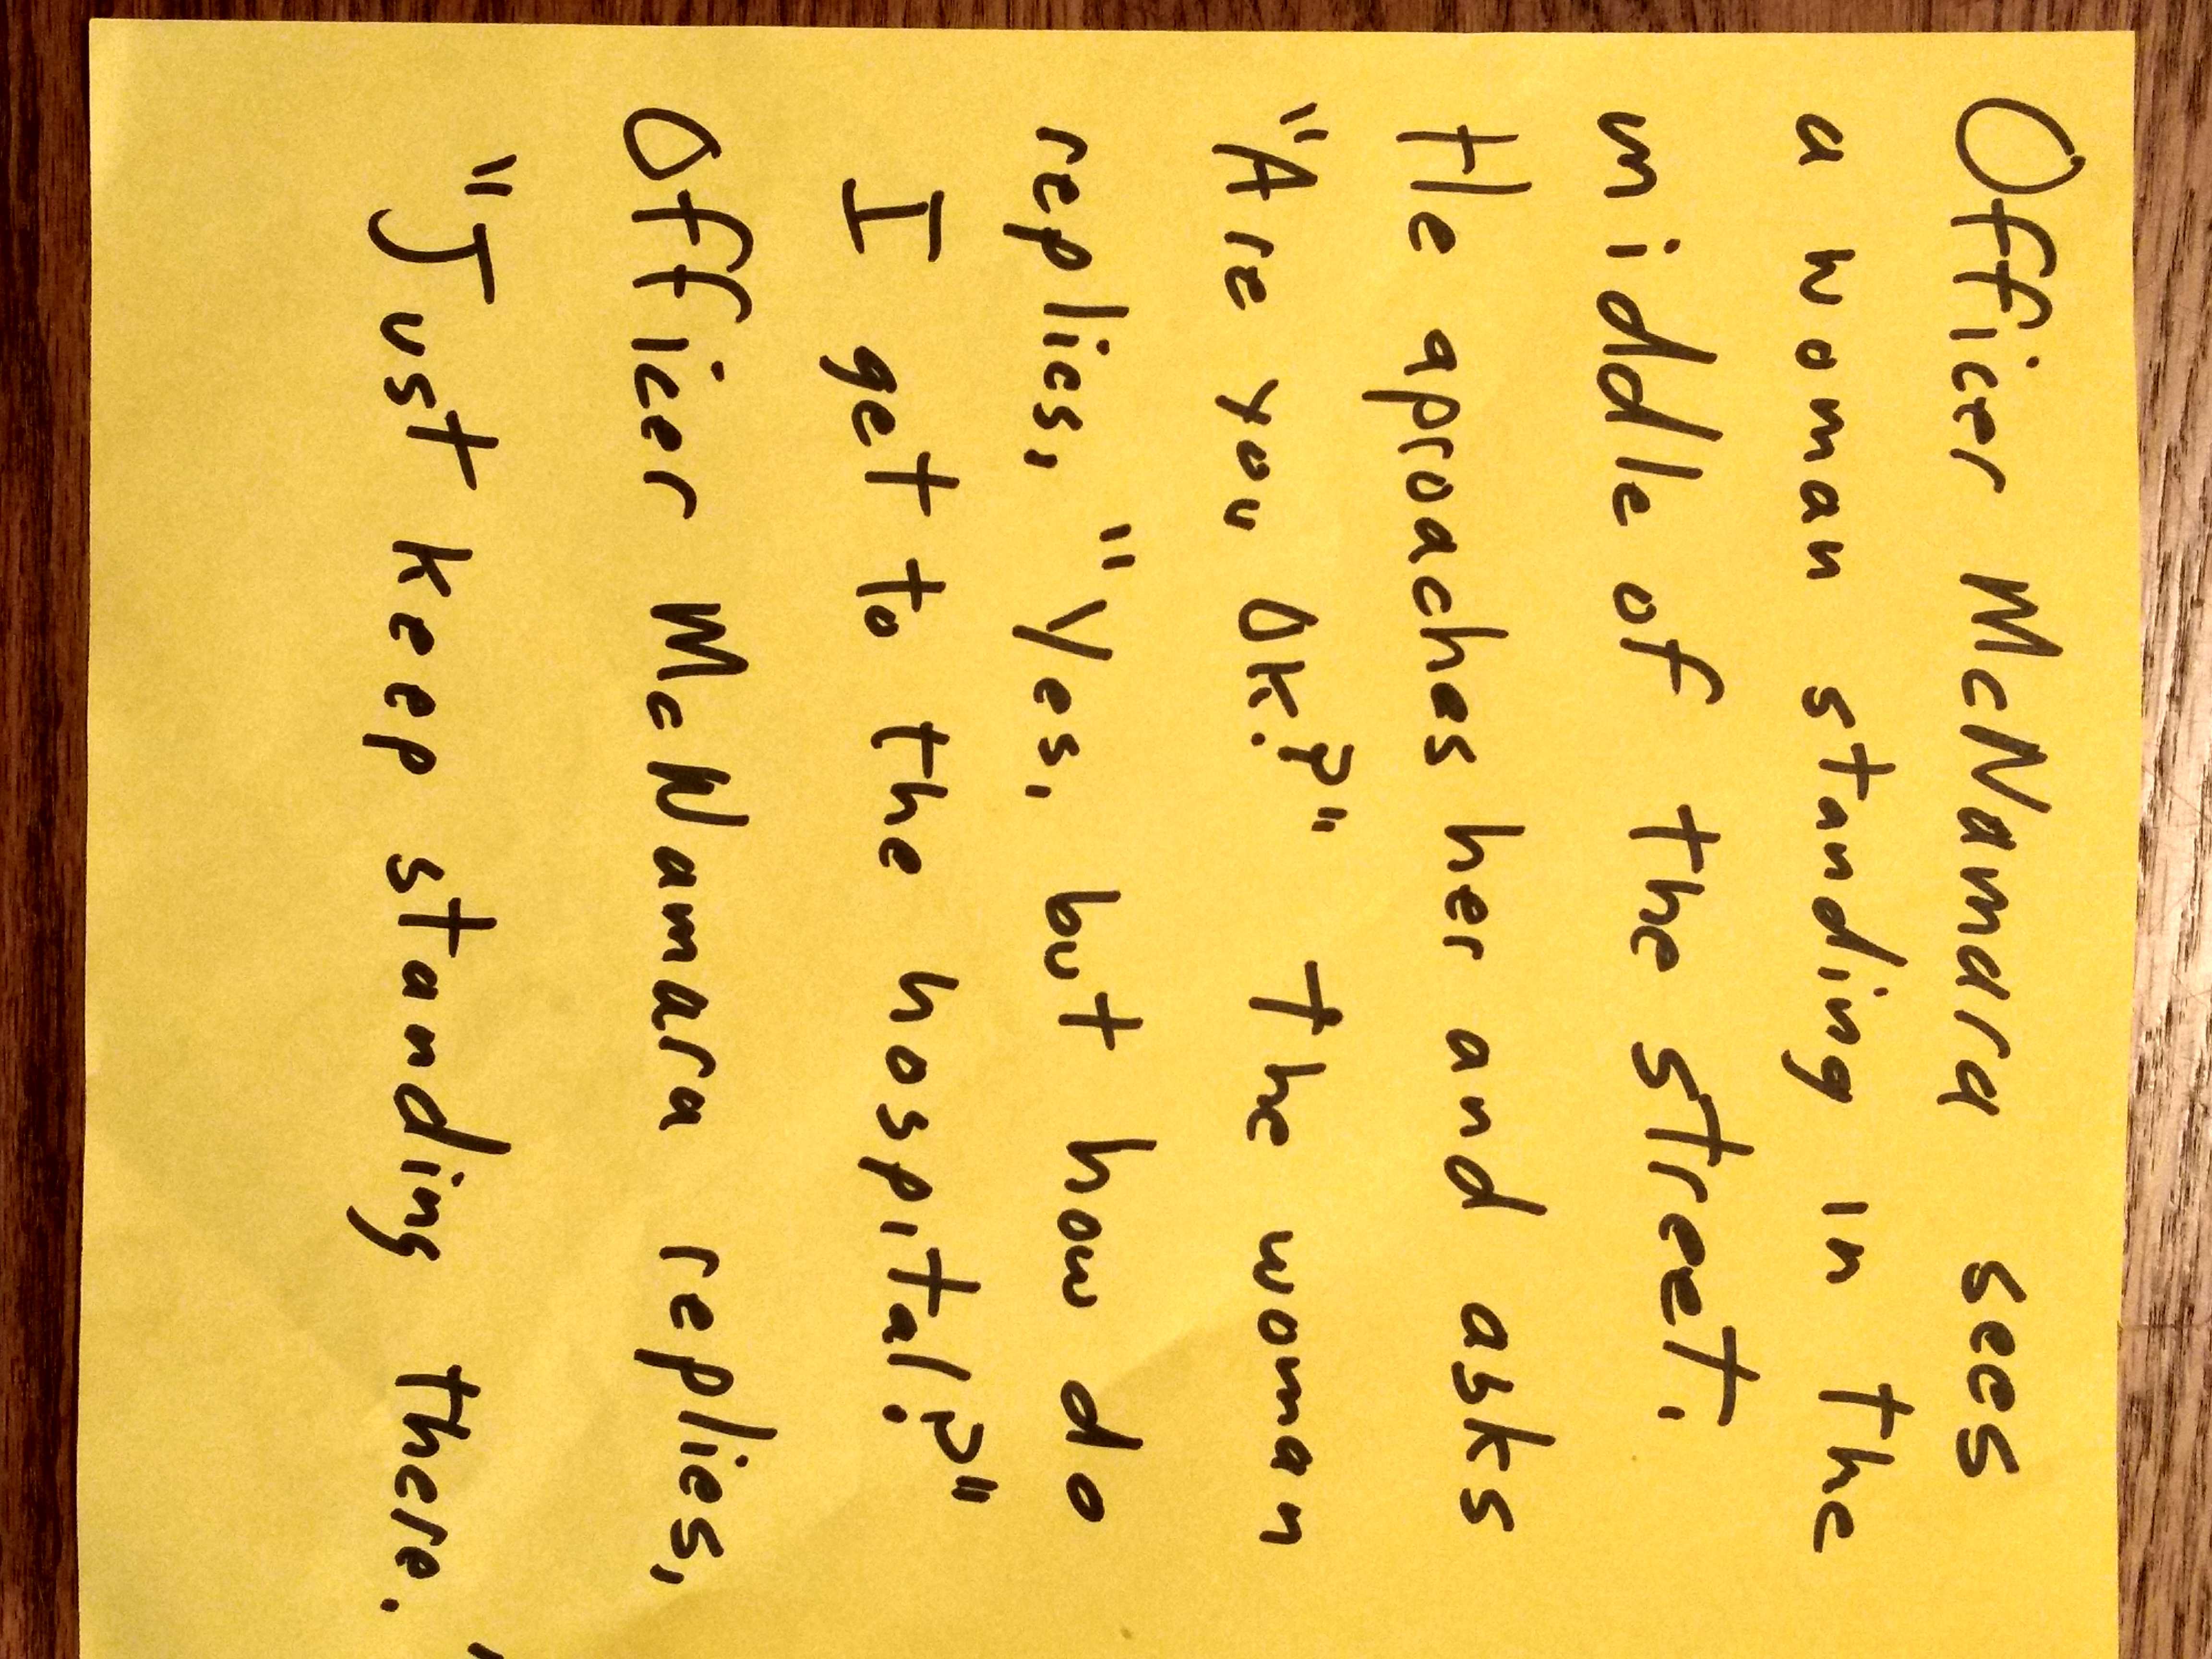 Officer McNamara sees
a woman standing in the
middle of the street.
He aproaches her and asks
"Are you OK?" The woman
replies, "Yes, but how do
I get to the hospital?"
Officer McNamara replies,
"Just keep standing there."